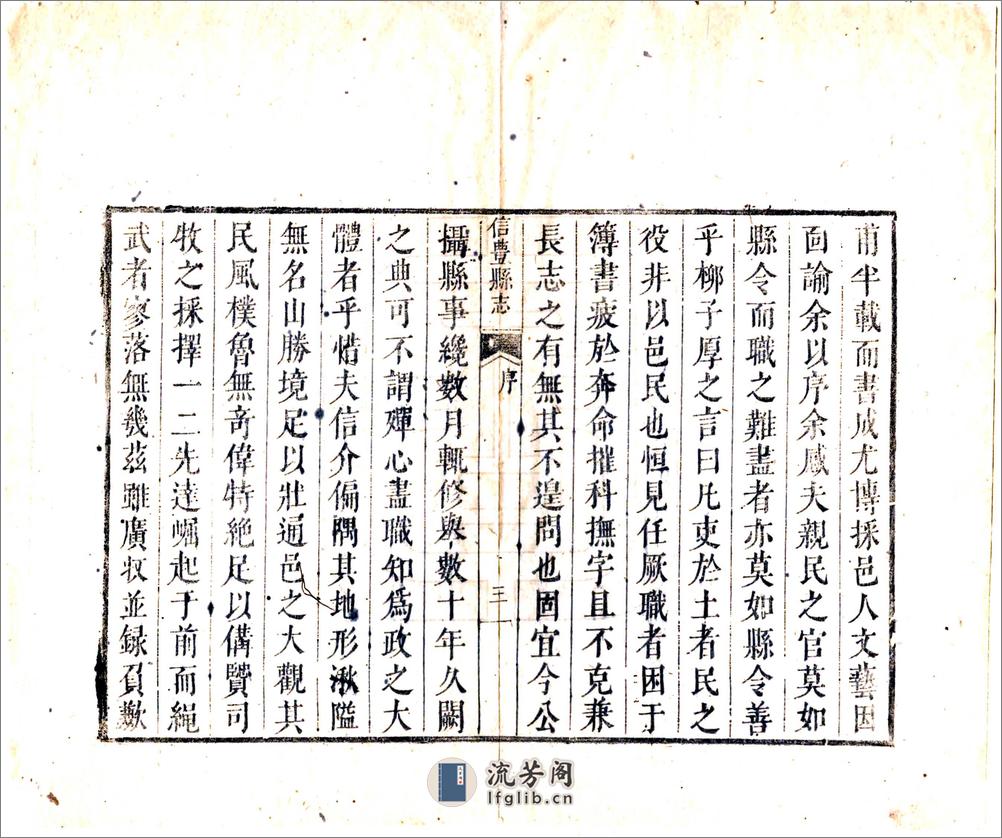 甫半載而書成尤博採邑人文藝因
面諭余以序余感夫親民之官莫如
縣令而職之難盡者亦莫如縣令善
乎柳子厚之言曰凡吏於土者民之
役非以邑民也恒見任厥職者困于
簿書疲於奔命摧科撫字且不克兼
長志之有無其不遑問也固宜今公
信豐縣志
序
三
攝縣事纔數月輒修舉數十年久闕
之典可不謂殫心盡職知爲政之大
體者乎惜夫信介偏隅其地形湫隘
無名山勝境足以壯通邑之大觀其
民風樸魯無竒偉特絶足以偹贊司
牧之採擇一二先達崛起于前而繩
武者寥落無幾茲雖廣收並録頁歉
流芳阁
lfglib.cn